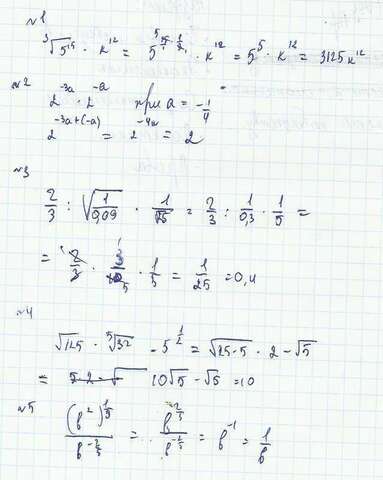 №1
³√5¹⁵ · κ¹² = 5^(15/1 · 1/3) · κ¹² = 5⁵ · κ¹² = 3125κ¹²
№2
2^(-3a) · 2^(-a) при a = -1/4
2^(-3a+(-a)) = 2^(-4a) = 2
№3
2/3 : √(1/0,09) · 1/√25 = 2/3 : 1/0,3 · 1/5 =
= 2/3 · 3/10 · 1/5 = 1/25 = 0,4
№4
√125 · ⁵√32 - 5^(1/2) = √(25·5) · 2 - √5
= 10√5 - √5 = 10
№5
(b²)^(1/5) / b^(-2/5) = b^(2/5) / b^(-2/5) = b⁻¹ = 1/b